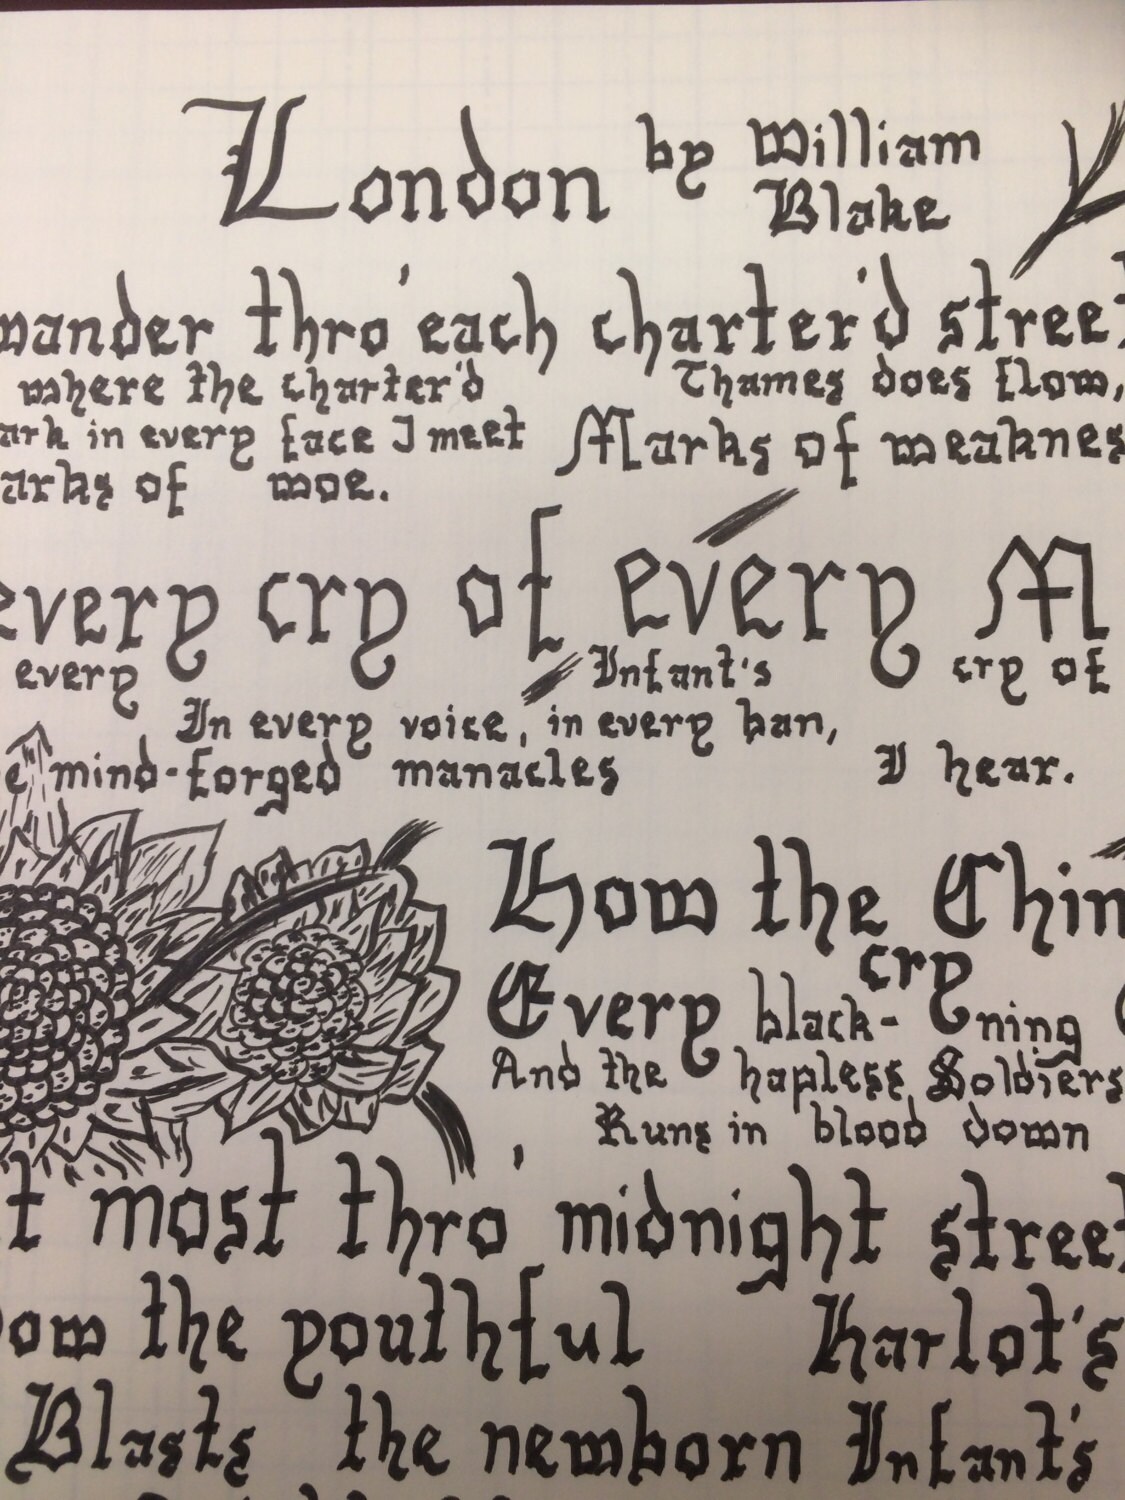 London by William
Blake
wander thro' each charter'd street
where the charter'd Thames does flow,
ark in every face I meet Marks of weaknes
arks of woe.
every cry of every M
every Infant's cry of
In every voice, in every ban,
e mind-forged manacles I hear.
How the Chim
cry
Every black-ning
And the hapless Soldiers
Runs in blood down
t most thro' midnight street
ow the youthful Harlot's
Blasts the newborn Infant's